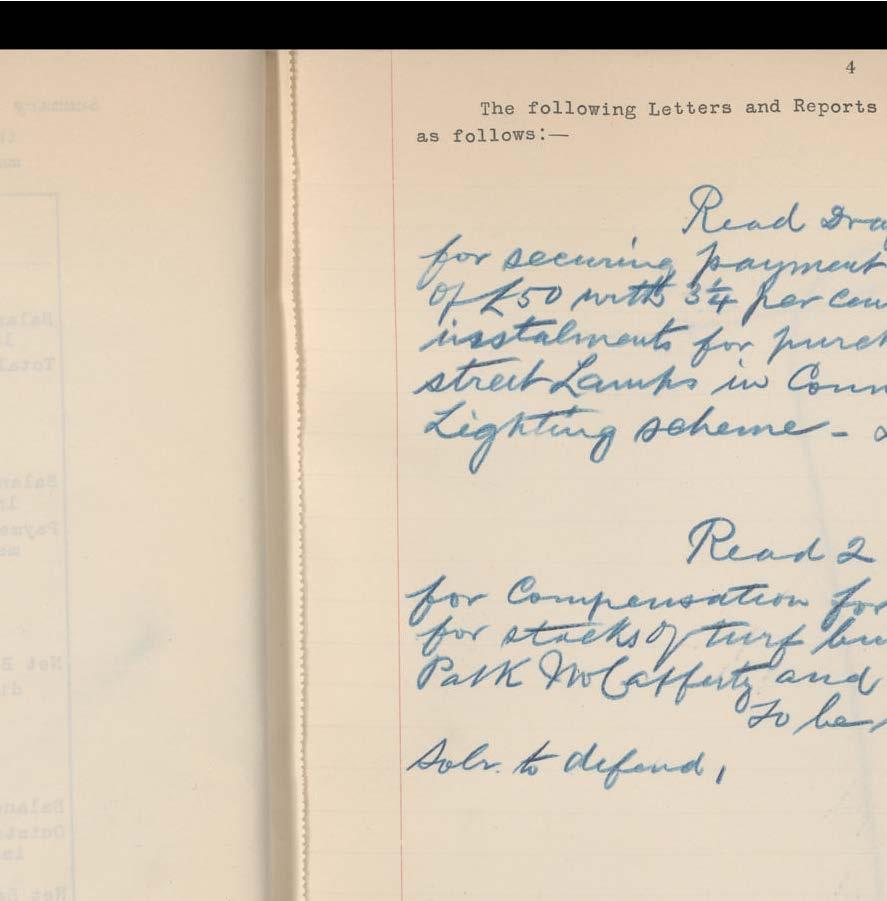 4
The following Letters and Reports
as follows:—
Read Dra
for securing payment
of £50 with 3¼ per cen
instalments for purch
street Lamps in Conn
Lighting scheme -
Read 2
for Compensation for
for stacks of turf bu
Patk McCafferty and
To be
Solr. to defend,